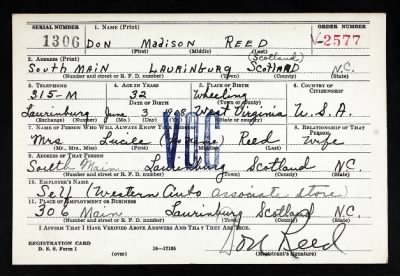 SERIAL NUMBER 1. NAME (Print) ORDER NUMBER
1306 DON Madison REED V-2577
(First) (Middle) (Last)
2. ADDRESS (Print) (Scotland)
South Main Laurinburg Scotland N.C.
(Number and street or R. F. D. number) (Town) (County) (State)
3. TELEPHONE 4. AGE IN YEARS 5. PLACE OF BIRTH 6. COUNTRY OF CITIZENSHIP
315-M 32 Wheeling
DATE OF BIRTH (Town or county)
Laurinburg June 3 1908 West Virginia U.S.A.
(Exchange) (Number) (Mo.) (Day) (Yr.) (State or country)
7. NAME OF PERSON WHO WILL ALWAYS KNOW YOUR ADDRESS 8. RELATIONSHIP OF THAT PERSON
Mrs Lucile Reed Wife
(Mr., Mrs., Miss) (First) (Middle) (Last)
VOC
9. ADDRESS OF THAT PERSON
South Main Laurinburg Scotland N.C.
(Number and street or R. F. D. number) (Town) (County) (State)
10. EMPLOYER'S NAME
Self (Western Auto associate store)
11. PLACE OF EMPLOYMENT OR BUSINESS
306 Main Laurinburg Scotland N.C.
(Number and street or R. F. D. number) (Town) (County) (State)
I AFFIRM THAT I HAVE VERIFIED ABOVE ANSWERS AND THAT THEY ARE TRUE.
REGISTRATION CARD
D. S. S. Form 1 16-17105
Don Reed
(Registrant's signature)